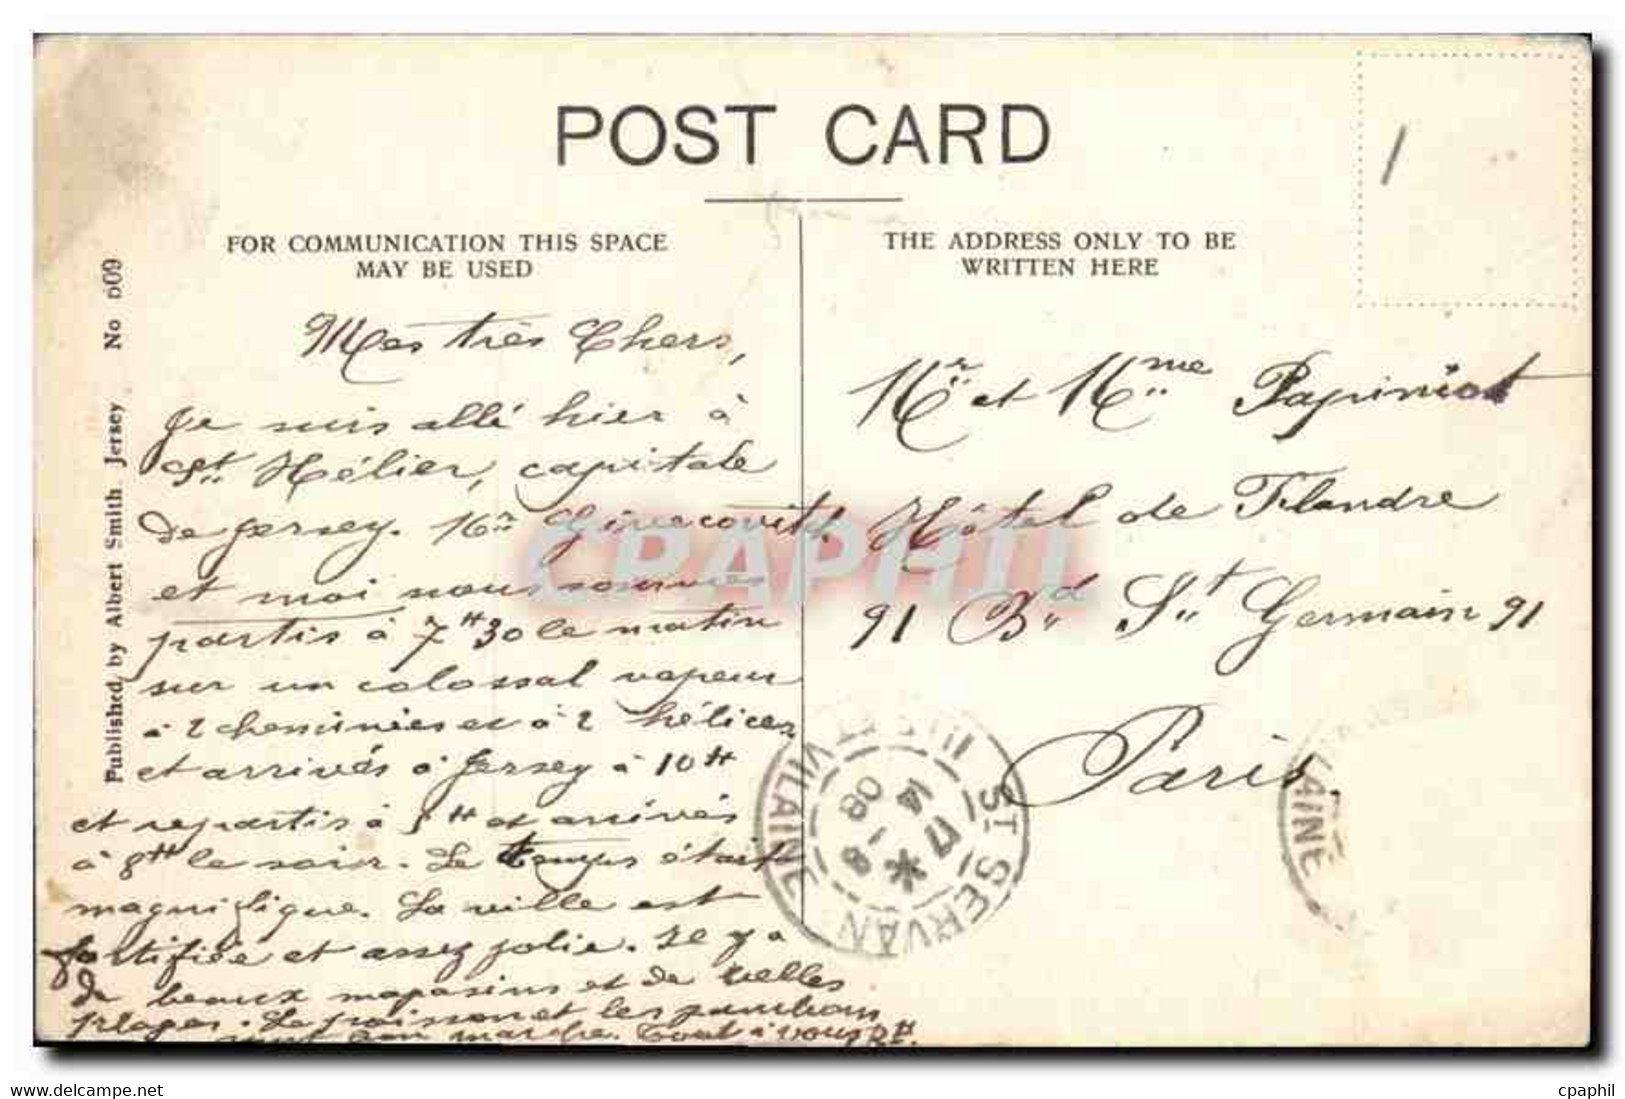 POST CARD
FOR COMMUNICATION THIS SPACE
MAY BE USED
THE ADDRESS ONLY TO BE
WRITTEN HERE
Published by Albert Smith Jersey No 609
Mes très Chers,
Je suis allé hier à
St. Hélier, capitale
de Jersey. Mr
et moi nous sommes
partis à 7H30 le matin
sur un colossal vapeur
à 2 cheminées et à 2 hélices
et arrivés à Jersey à 10H
et repartis à 5H et arrivés
à 8H le soir. Le temps était
magnifique. La ville est
fortifiée et assez jolie. Il y a
de beaux magasins et de belles
plages. Le poisson et les
sont bon marché. Tout à vous
Mr et Mme Papiniot
Hôtel de Flandre
91 Bd St Germain 91
Paris.
ST SERVAN
ILLE ET VILAINE
17
14
8 - 08
LAINE
CPAPHIL
cpaphil